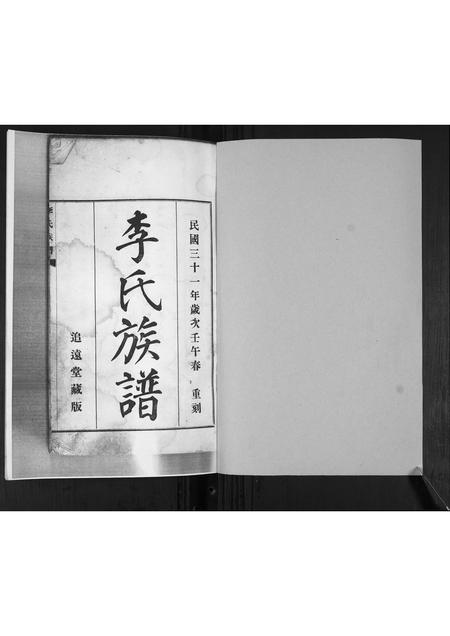 民國三十一年歲次壬午春 重刻
李氏族譜
追遠堂藏版
李氏族譜